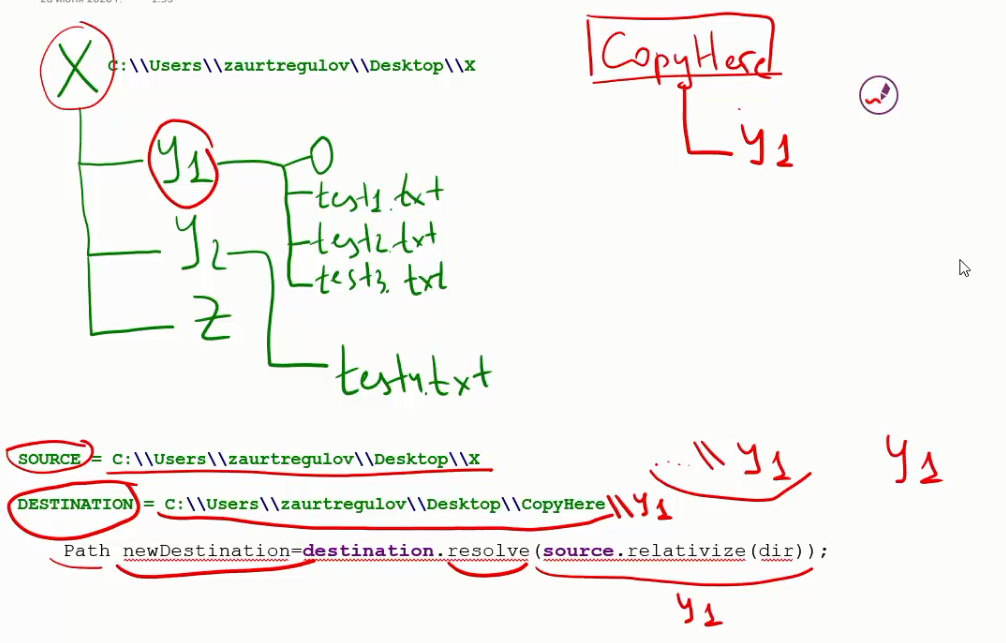 X C:\\Users\\zaurtregulov\\Desktop\\X
CopyHere
y1
y1 O
test1.txt
test2.txt
y2
test3.txt
z
test4.txt
SOURCE = C:\\Users\\zaurtregulov\\Desktop\\X
....\\ y1
y1
DESTINATION = C:\\Users\\zaurtregulov\\Desktop\\CopyHere\\y1
Path newDestination=destination.resolve(source.relativize(dir));
y1